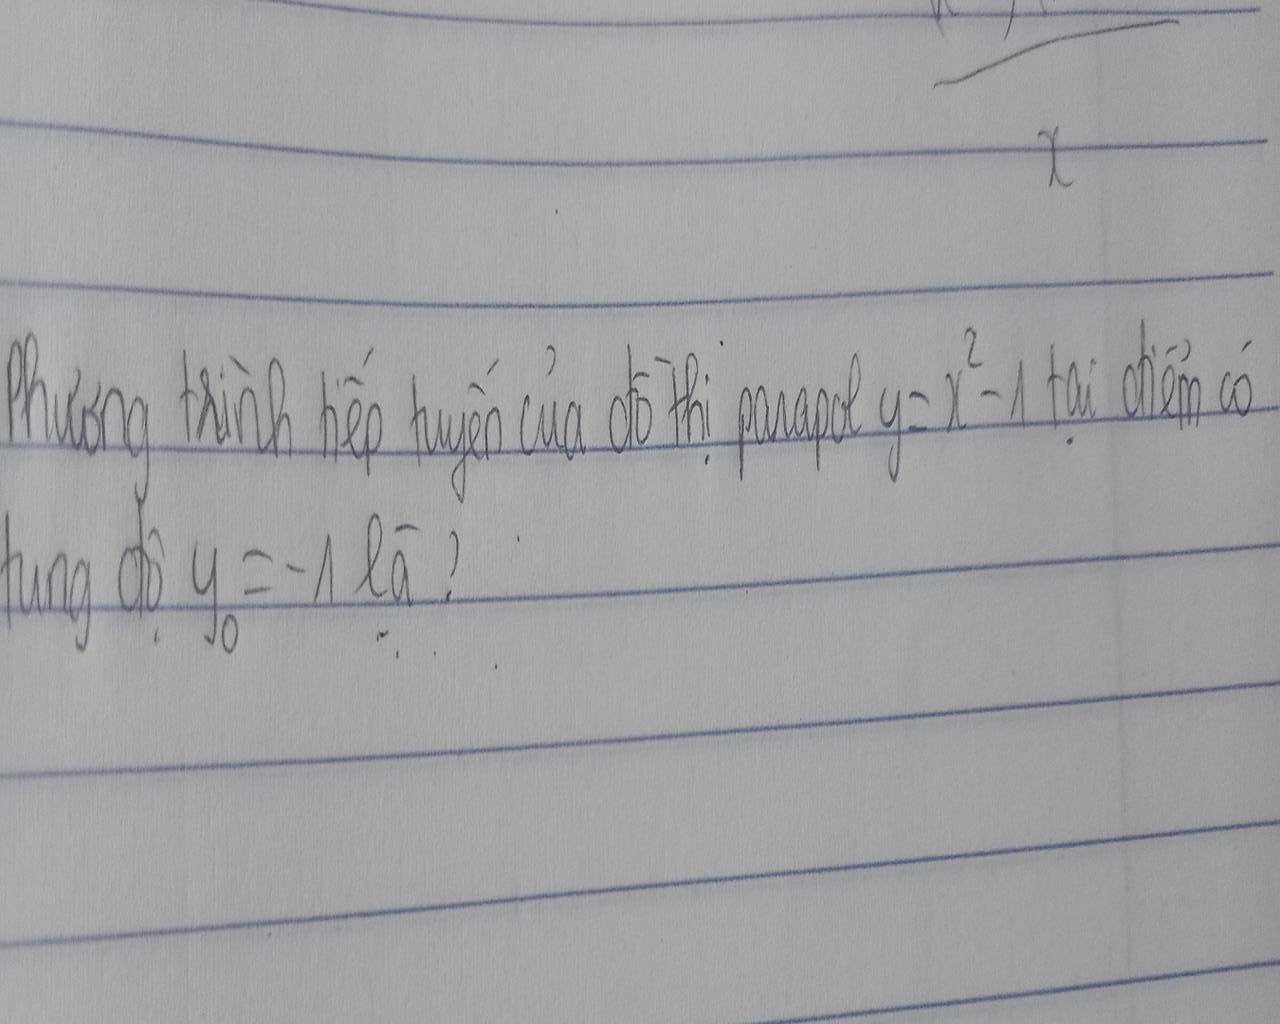 x
Phương trình tiếp tuyến của đồ thị parapol y = x² - 1 tại điểm có
tung độ y₀ = -1 là?